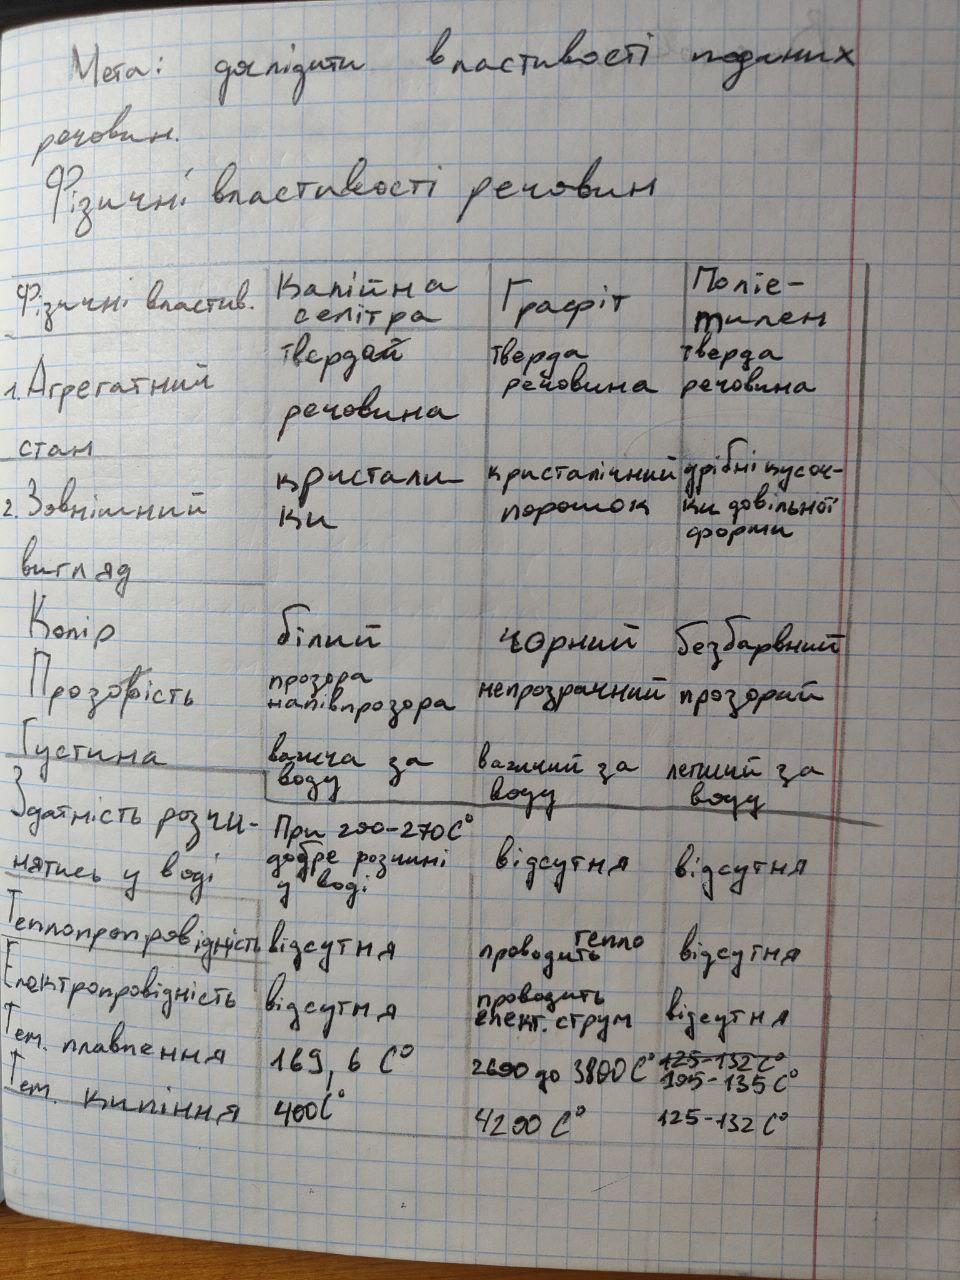 Мета: дослідити властивості поданих
речовин.
Фізичні властивості речовин
Фізичні властив.
Калійна
селітра
Графіт
Поліе-
тилен
1. Агрегатний
стан
твердай
речовина
тверда
речовина
тверда
речовина
2. Зовнішний
вигляд
кристали-
ки
кристалічний
порошок
дрібні кусоч-
ки довільної
форми
Колір
білий
чорний
безбарвний
Прозорість
прозора
напівпрозора
непрозрачний
прозорий
Густина
важча за
воду
важчий за
воду
легший за
воду
Здатність розчи-
нятись у воді
При 200-270 C°
добре розчинні
у воді
відсутня
відсутня
Теплопропровідність
відсутня
проводить тепло
відсутня
Електропровідність
відсутня
проводить
елект. струм
відсутня
Тем. плавлення
169, 6 C°
2600 до 3800 C°
125-132 C°
105-135 C°
Тем. кипіння
400C°
4200 C°
125-132 C°